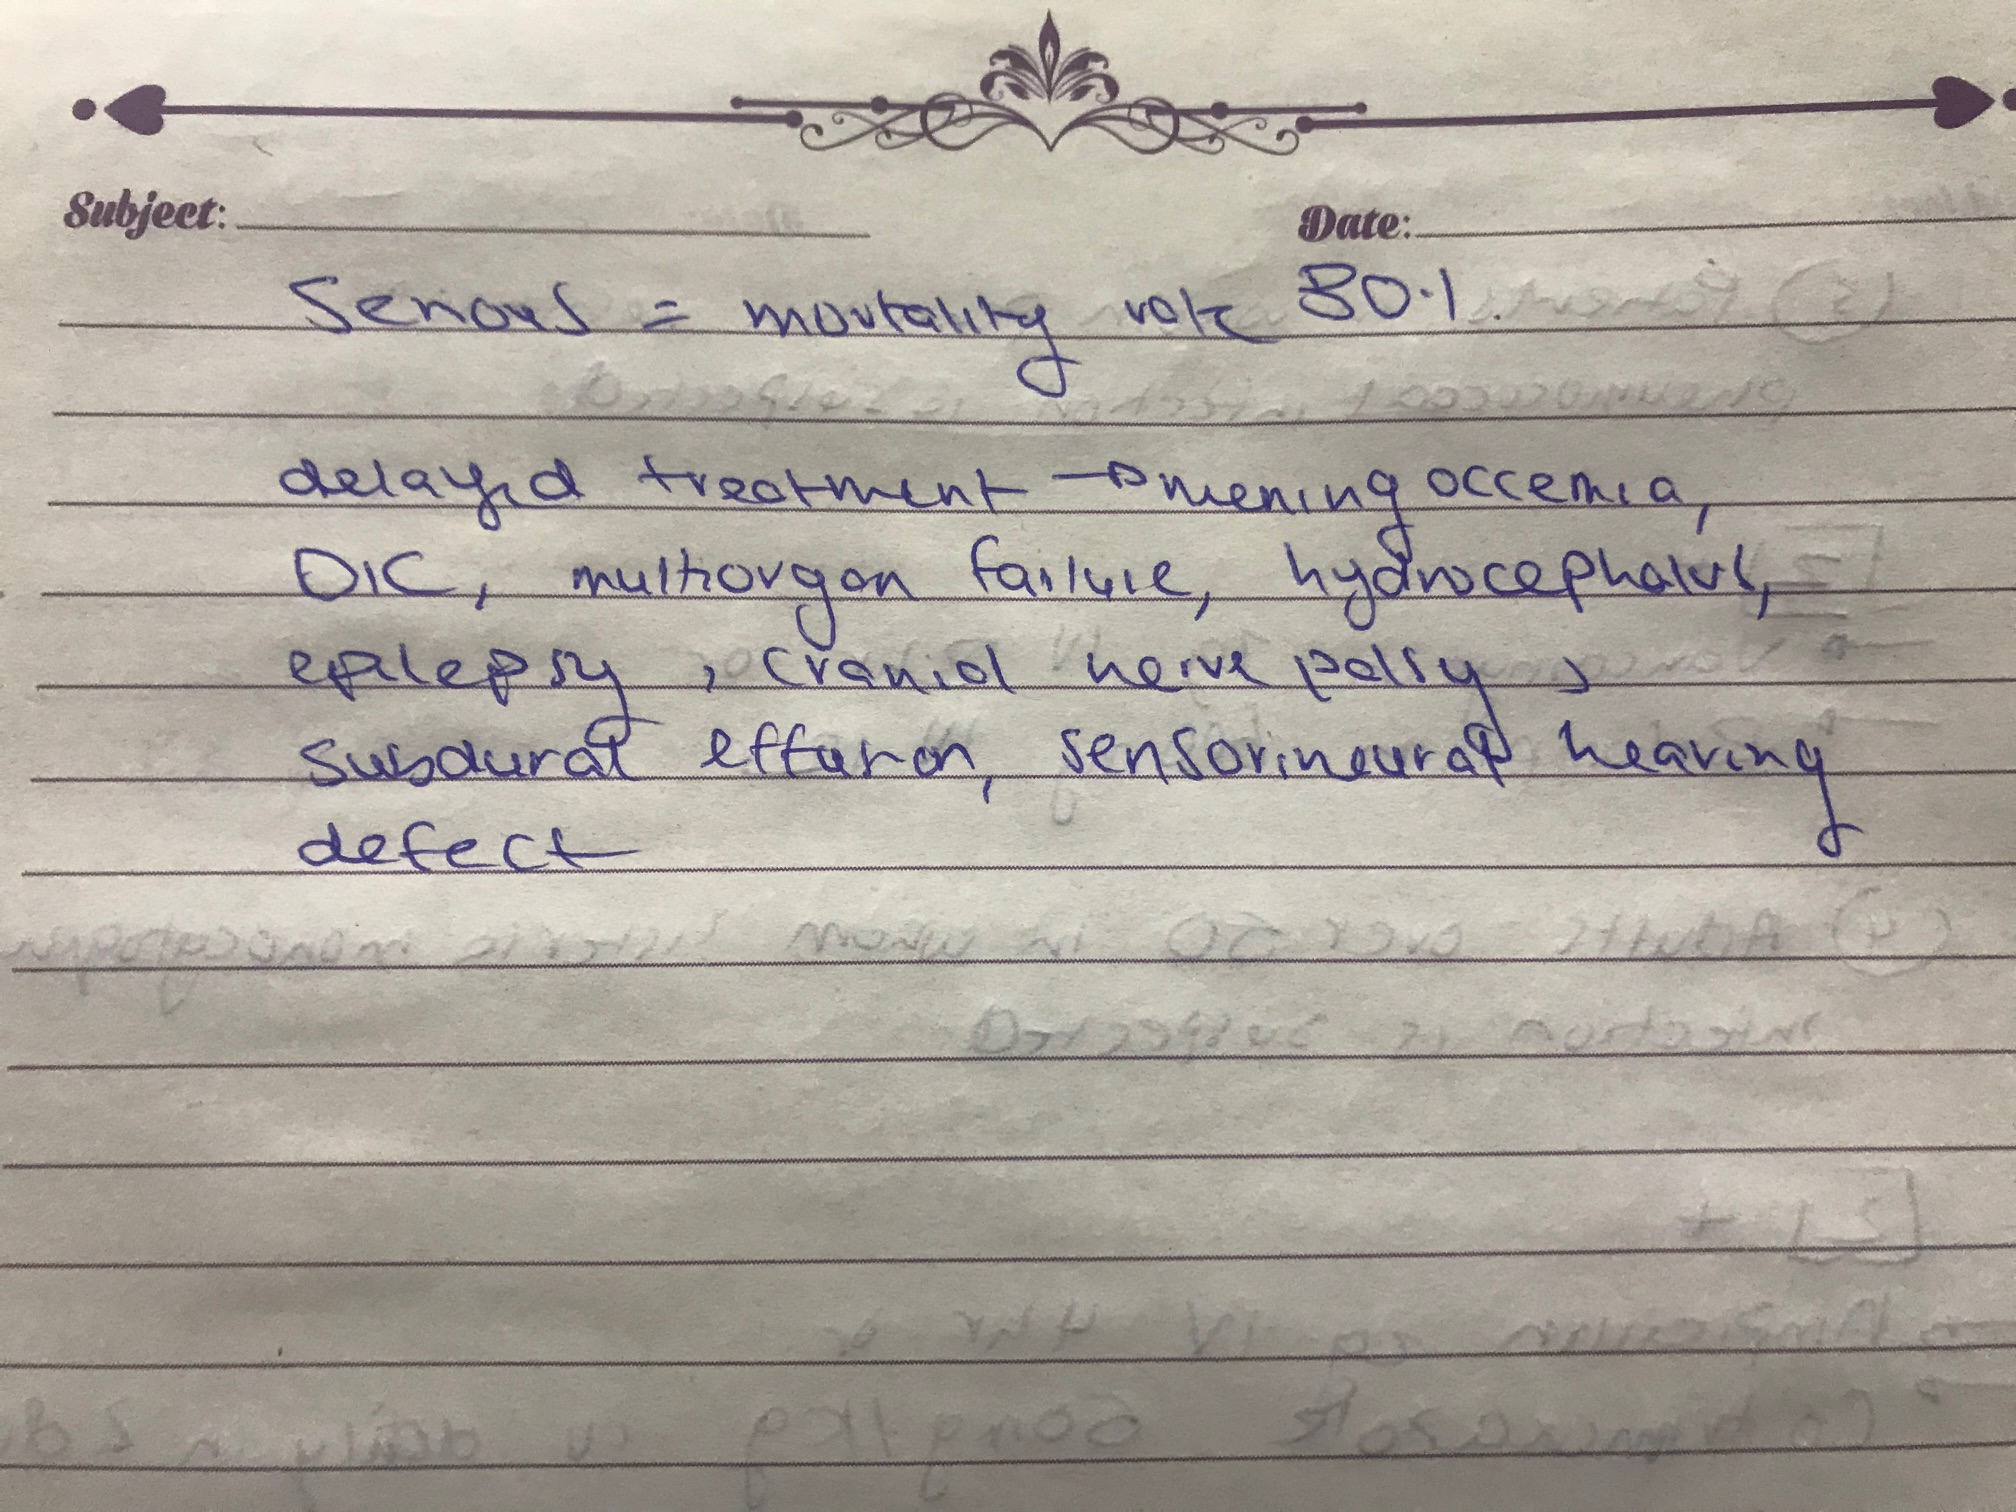 Subject:
Date:
Serious = mortality rate 80%.
delayed treatment → meningoccemia,
DIC, multiorgan failure, hydrocephalus,
epilepsy, cranial nerve palsy,
subdural effusion, sensorineural hearing
defect